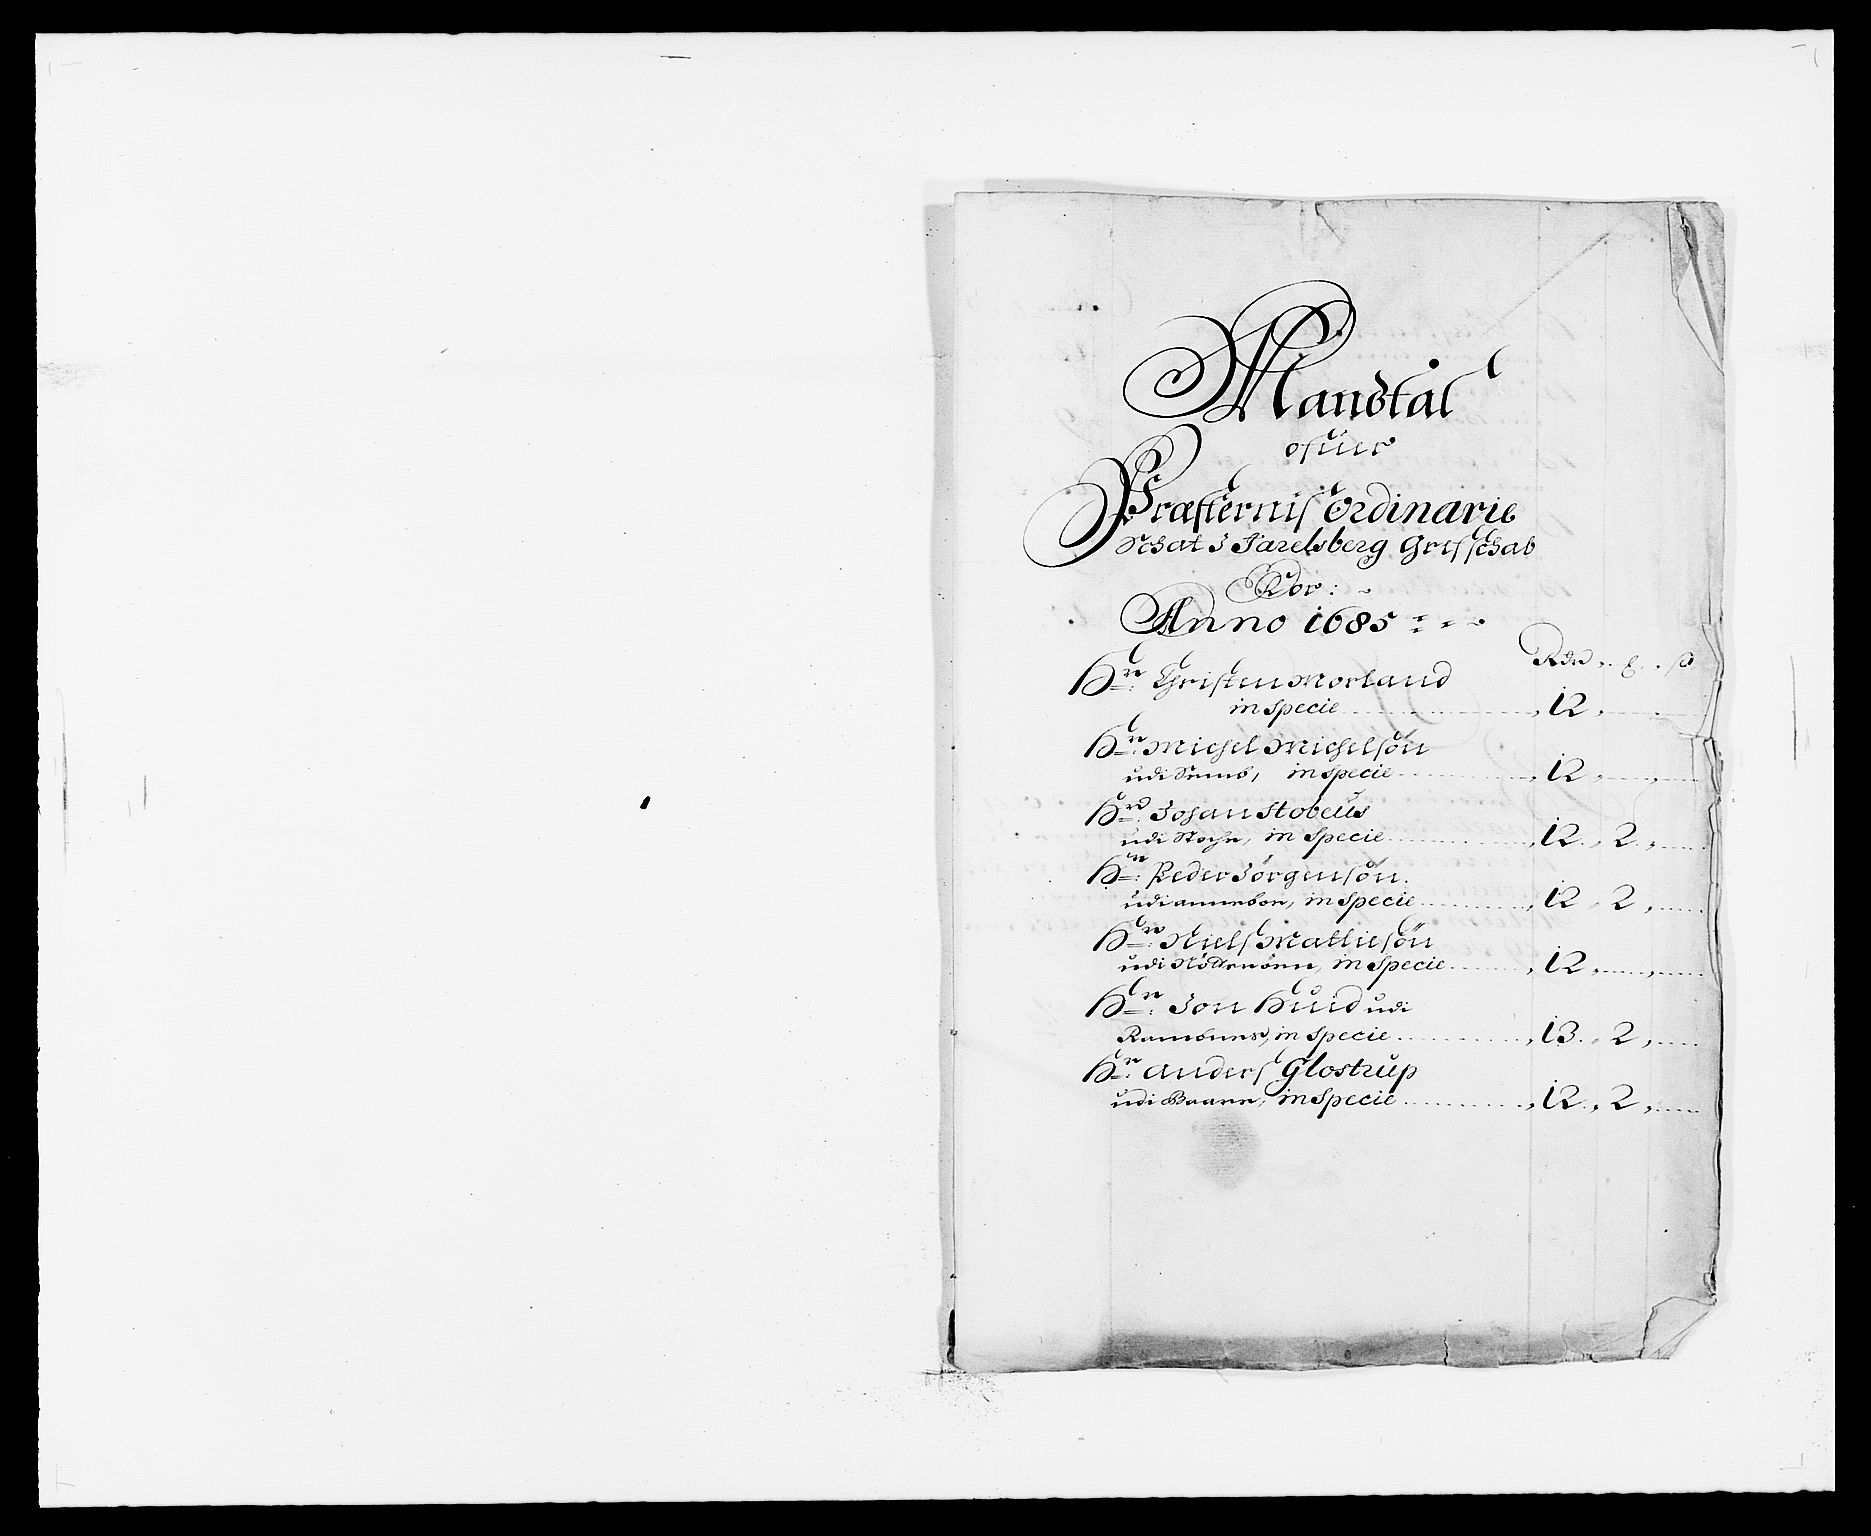 Mandtal
ofuer
Præsternis Ordinarie
Schat I Jarelsberg Grefschab
For:
Anno 1685
Rdr
Hr: Christen Morland
in specie 12
Hr: Michel Michelsøn
udi Semb, in specie 12
Hr: Johan Stobeus
udi Stoche, in specie 12 2
Hr: Peder Jørgensøn
udi annebon, in specie 12 2
Hr: Niels Mathiesøn
udi Nøtterøen, in specie 12
Hr: Jon Huid udi
Ramdness, in specie 13 2
Hr: Anders Glostrup
udi Baarre, in specie 12 2